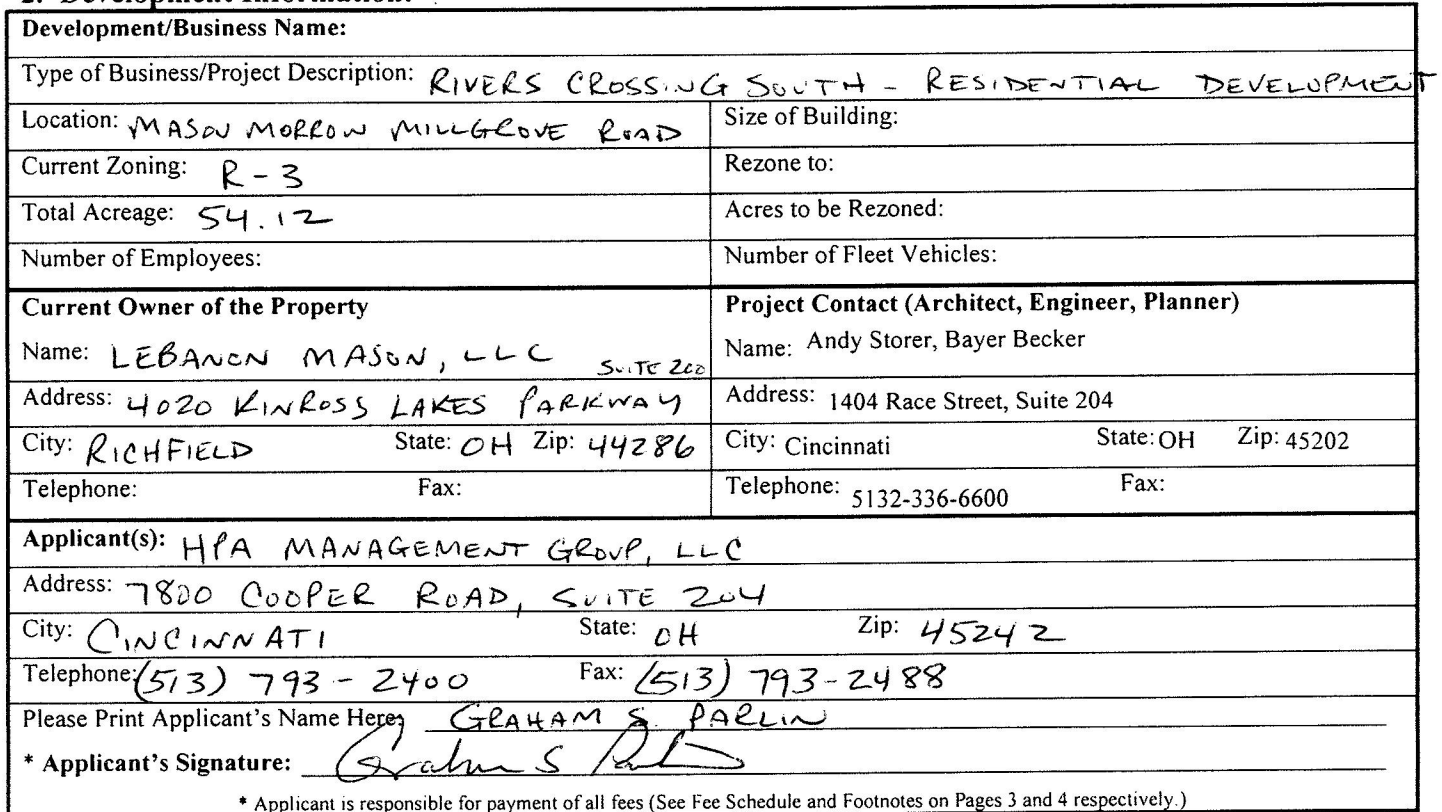 2. Development Information:
Development/Business Name:
Type of Business/Project Description: RIVERS CROSSING SOUTH - RESIDENTIAL DEVELOPMENT
Location: MASON MORROW MILLGROVE ROAD
Size of Building:
Current Zoning: R-3
Rezone to:
Total Acreage: 54.12
Acres to be Rezoned:
Number of Employees:
Number of Fleet Vehicles:
Current Owner of the Property
Name: LEBANON MASON, LLC SUITE 200
Address: 4020 KINROSS LAKES PARKWAY
City: RICHFIELD State: OH Zip: 44286
Telephone: Fax:
Project Contact (Architect, Engineer, Planner)
Name: Andy Storer, Bayer Becker
Address: 1404 Race Street, Suite 204
City: Cincinnati State: OH Zip: 45202
Telephone: 5132-336-6600 Fax:
Applicant(s): HPA MANAGEMENT GROUP, LLC
Address: 7800 COOPER ROAD, SUITE 204
City: CINCINNATI State: OH Zip: 45242
Telephone: (513) 793-2400 Fax: (513) 793-2488
Please Print Applicant's Name Here: GRAHAM S. PARLIN
* Applicant's Signature: Graham S
* Applicant is responsible for payment of all fees (See Fee Schedule and Footnotes on Pages 3 and 4 respectively.)